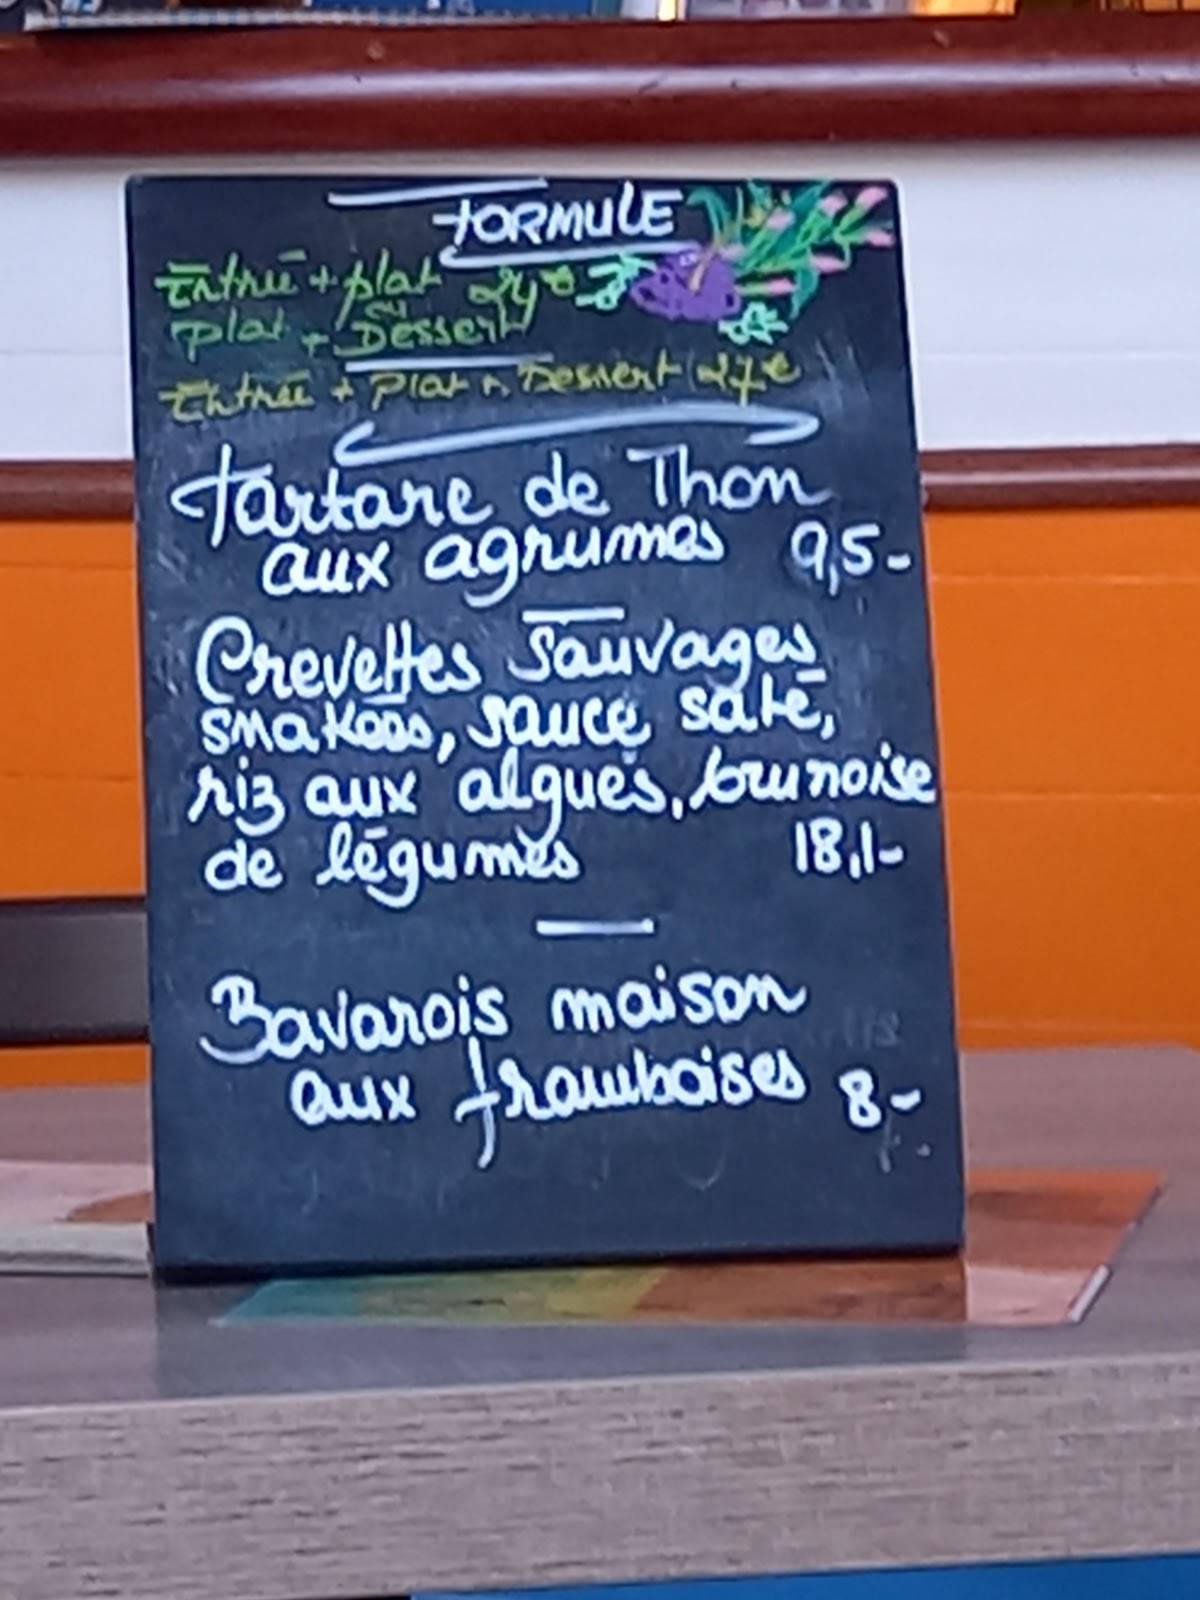 FORMULE
Entrée + plat 24€
ou
plat + Dessert
Entrée + Plat + Dessert 27€
Tartare de Thon
aux agrumes 9,5-
Crevettes Sauvages
snakées, sauce saté,
riz aux algues, brunoise
de légumes 18,1-
Bavarois maison
aux framboises 8-